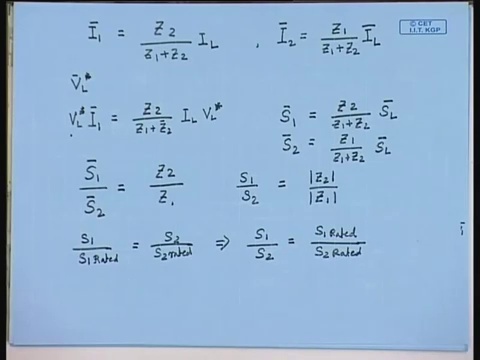 Ī₁ = Z₂/(Z₁+Z₂) I_L , Ī₂ = Z₁/(Z₁+Z₂) Ī_L
© CET
I.I.T. KGP
V̄_L*
V_L* Ī₁ = Z₂/(Z₁+Z₂) I_L V_L*
S̄₁ = Z₂/(Z₁+Z₂) S̄_L
S̄₂ = Z₁/(Z₁+Z₂) S̄_L
S̄₁/S̄₂ = Z₂/Z₁
S₁/S₂ = |Z₂|/|Z₁|
S₁/S₁ Rated = S₂/S₂ rated ⇒ S₁/S₂ = S₁ Rated/S₂ Rated